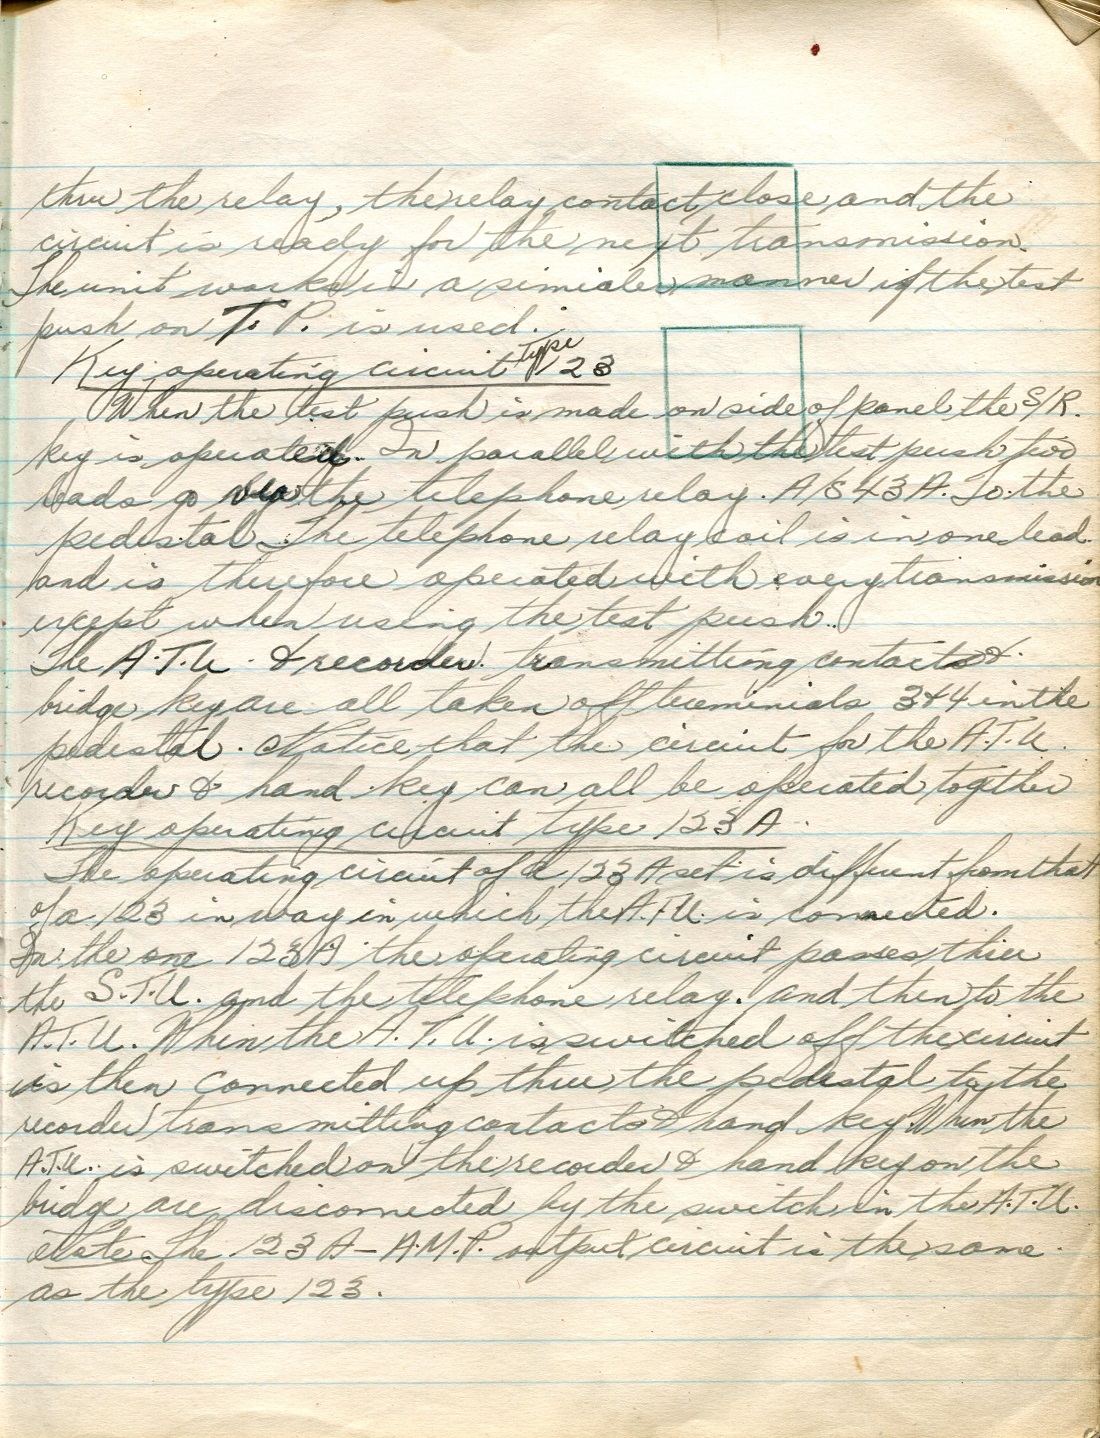 thru the relay, the relay contact close and the
circuit is ready for the next transmission.
The unit works in a similer manner if the test
push on T. P. is used.
Key operating circuit Type 123
When the test push is made on side of panel the S/R.
key is operated. In parallel with the test push two
leads go via the telephone relay. A/S 43 A. To the
pedistal. The telephone relay coil is in one lead.
and is therefore operated with every transmission
except when using the test push.
The A.T.U. & recorder transmitting contacts &
bridge key are all taken off terminials 3 & 4 in the
pedestal. Notice that the circuit for the A.T.U.
recorder & hand key can all be operated together
Key operating circuit type 123 A.
The operating circuit of a 123 A set is different from that
of a 123 in way in which the A.T.U. is connected.
In the one 123 A the operating circuit passes thru
the S.T.U. and the telephone relay. and then to the
A.T.U. When the A.T.U. is switched off the circuit
is then connected up thru the pedestal to the
recorder transmitting contacts & hand key. When the
A.T.U. is switched on the recorder & hand key on the
bridge are disconnected by the switch in the A.T.U.
Note The 123 A – A.M.P. output circuit is the same
as the type 123.